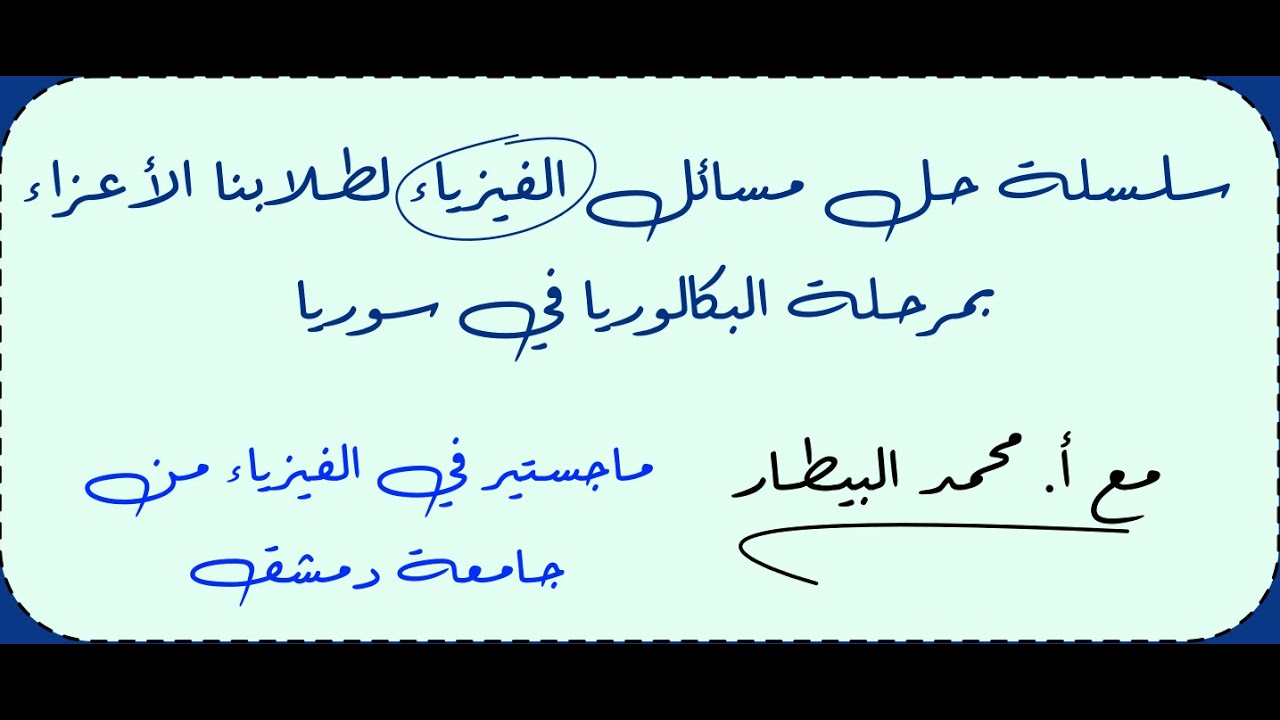 سلسلة حل مسائل الفيزياء لطلابنا الأعزاء
بمرحلة البكالوريا في سوريا
مع أ. محمد البيطار
ماجستير في الفيزياء من
جامعة دمشق